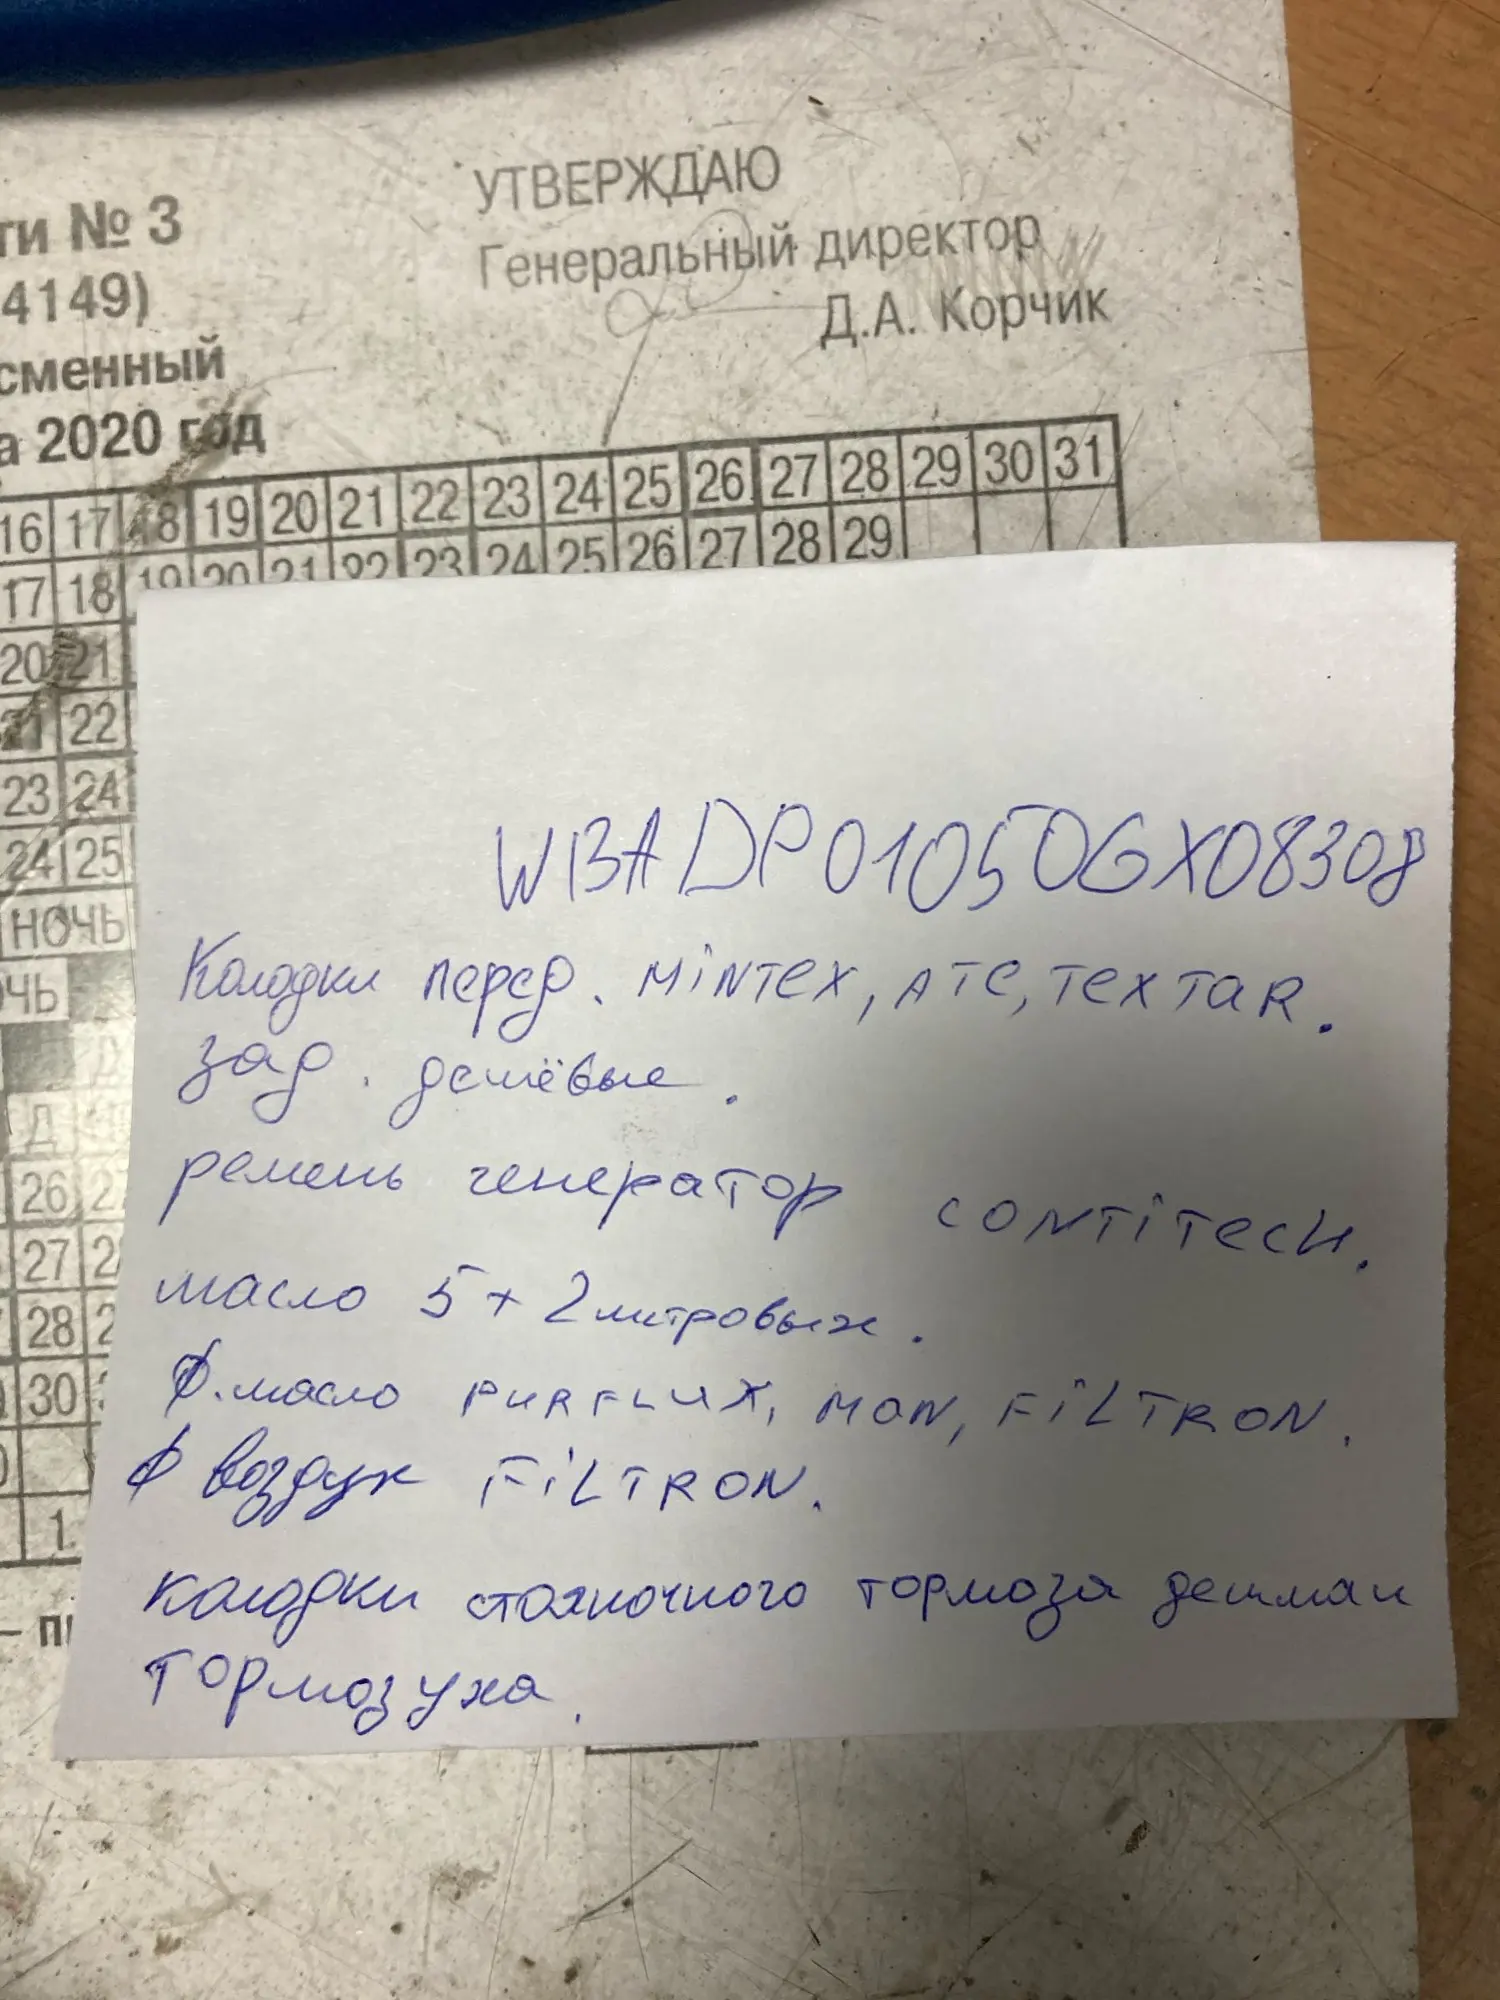 УТВЕРЖДАЮ
ти № 3
Генеральный директор
4149)
Д.А. Корчик
сменный
а 2020 год
16 17 18 19 20 21 22 23 24 25 26 27 28 29 30 31
17 18 19 20 21 22 23 24 25 26 27 28 29
20 21
21 22
23 24
24 25
НОЧЬ
ЧЬ
Д
26
27
28
30
1
– п
WBADP01050GX08308
Колодки перед. MiNTEX, ATE, TEXTAR.
зад. дешёвые.
ремень генератор CONTiTECH.
масло 5+2 литровых.
ф.масло PURFLUX, MAN, FiLTRON.
ф воздух FiLTRON.
колодки стояночного тормоза дешман
тормозуха.